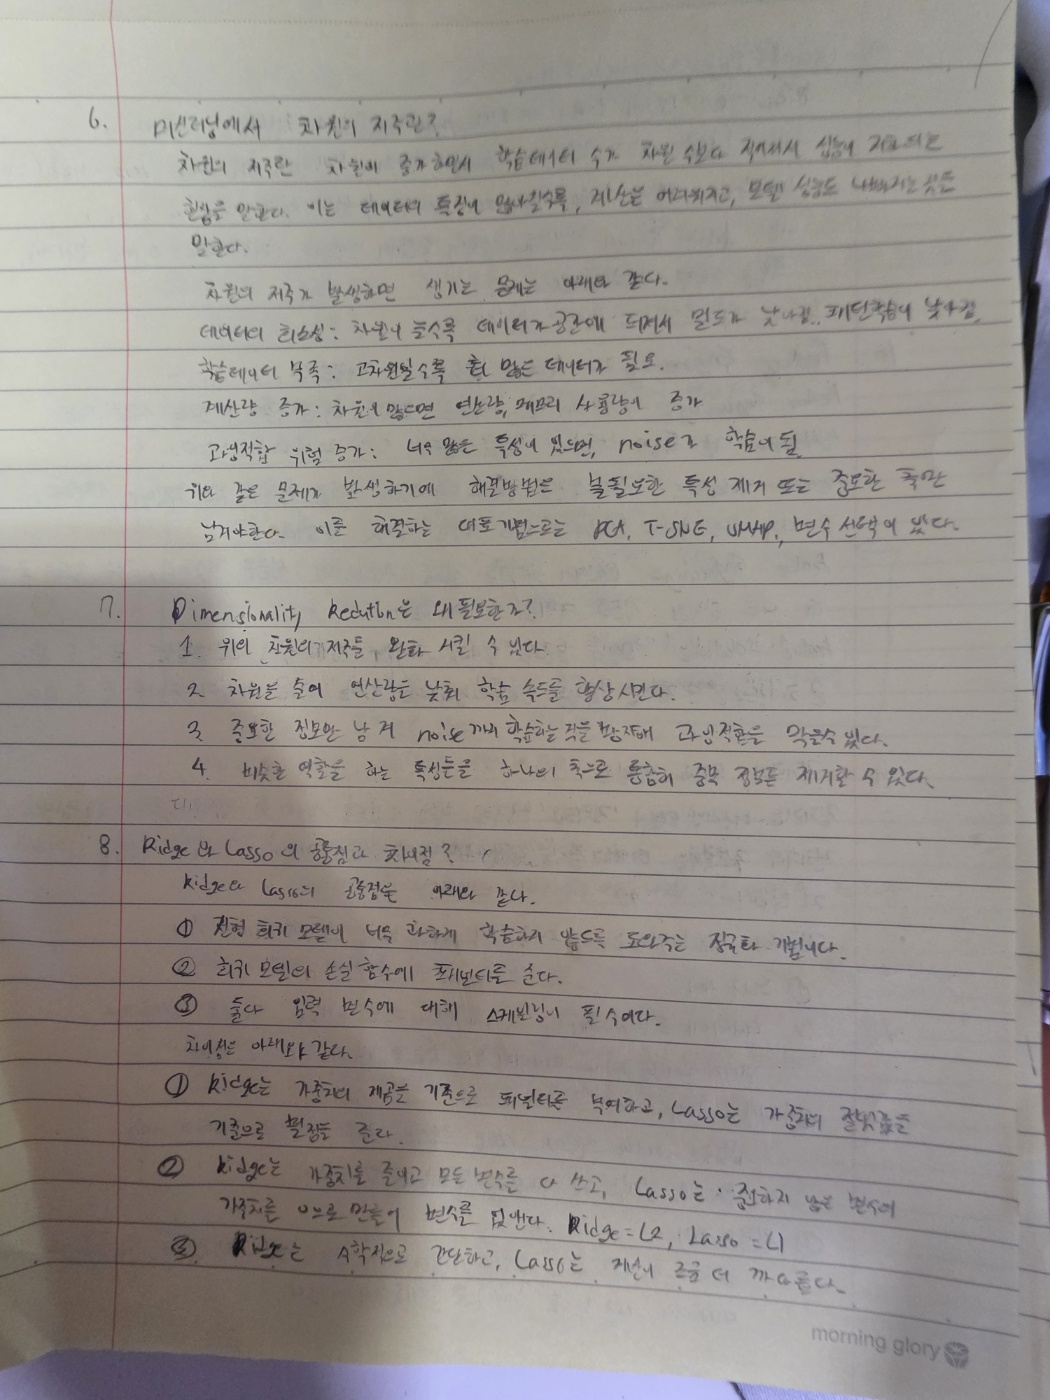 6. 머신러닝에서 차원의 저주란?
차원의 저주란 차원이 증가하면서 학습데이터 수가 차원 수보다 적어져서 성능이 저하되는
현상을 말한다. 이는 데이터의 특징이 많아질수록, 계산은 어려워지고, 모델 성능도 나빠지는 것을
말한다.
차원의 저주가 발생하면 생기는 문제는 아래와 같다.
데이터의 희소성: 차원이 높수록 데이터가 공간에 퍼져서 밀도가 낮아짐. 패턴학습이 낮아짐.
학습데이터 부족: 고차원일수록 훨씬 많은 데이터가 필요.
계산량 증가: 차원이 많으면 연산량, 메모리 사용량이 증가
과잉적합 위험 증가: 너무 많은 특성이 있으면, noise가 학습이 됨
위와 같은 문제가 발생하기에 해결방법은 불필요한 특성 제거 또는 중요한 축만
남겨야한다. 이를 해결하는 대표기법으로는 PCA, T-SNE, UMAP, 변수 선택이 있다.
7. Dimensionality Redution은 왜 필요한가?
1. 위의 차원의 저주를, 완화 시킬 수 있다.
2. 차원을 줄여 연산량을 낮춰 학습 속도를 향상시킨다.
3. 중요한 정보만 남겨 noise까지 학습하는 것을 방지해 과잉적합을 막을수 있다.
4. 비슷한 역할을 하는 특성들을 하나의 축으로 통합해 중복 정보를 제거할 수 있다.
8. Ridge와 Lasso의 공통점과 차이점?
Ridge와 Lasso의 공통점은 아래와 같다.
① 선형 회귀 모델이 너무 과하게 학습하지 않도록 도와주는 정규화 기법이다.
② 회귀 모델의 손실 함수에 페널티를 준다.
③ 둘다 입력 변수에 대해 스케일링이 필수이다.
차이점은 아래와 같다.
① Ridge는 가중치의 제곱을 기준으로 페널티를 부여하고, Lasso는 가중치의 절댓값을
기준으로 벌점을 준다.
② Ridge는 가중치를 줄이고 모든 변수를 다 쓰고, Lasso는 중요하지 않은 변수의
가중치를 0으로 만들어 변수를 없앤다. Ridge = L2, Lasso = L1
③ Ridge는 수학적으로 간단하고, Lasso는 계산이 조금 더 까다롭다.
morning glory